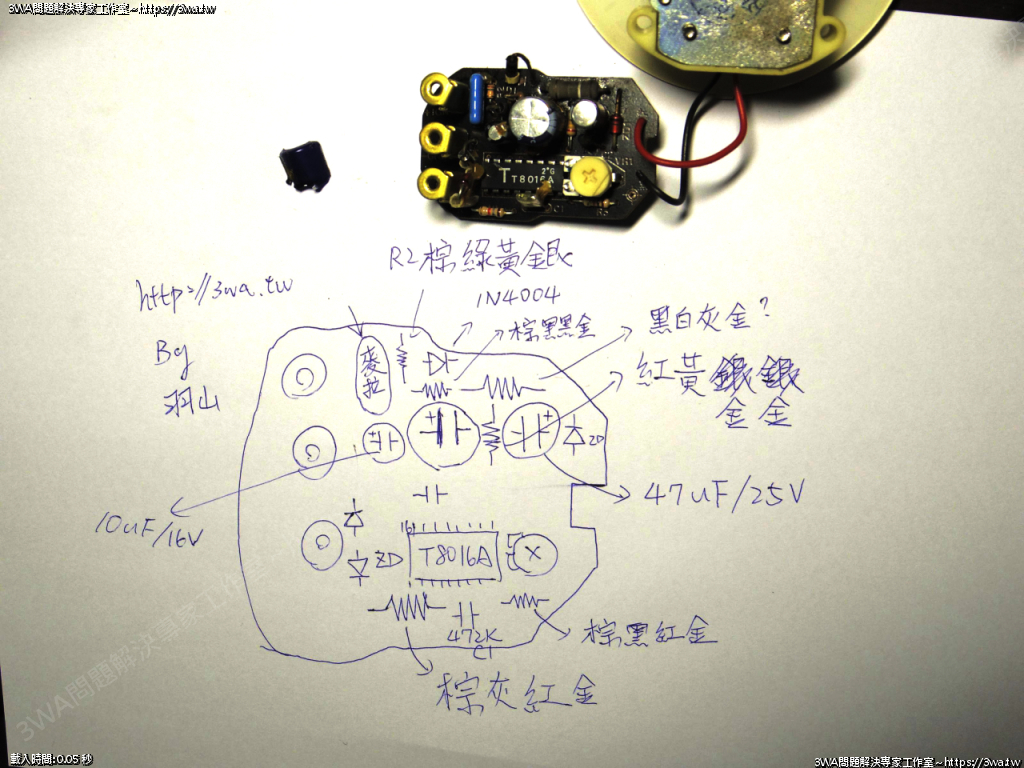 3WA問題解決專家工作室~https://3wa.tw
2*G
T T8016A
R2棕綠黃銀
http://3wa.tw
1N4004
棕黑黑金
黑白灰金?
By
羽山
麥拉
紅黃銀銀
金金
ZD
47uF/25V
10uF/16V
ZD
16
T8016A
472K
C1
棕黑紅金
棕灰紅金
3WA問題解決專家工作室
載入時間:0.05 秒
3WA問題解決專家工作室~https://3wa.tw